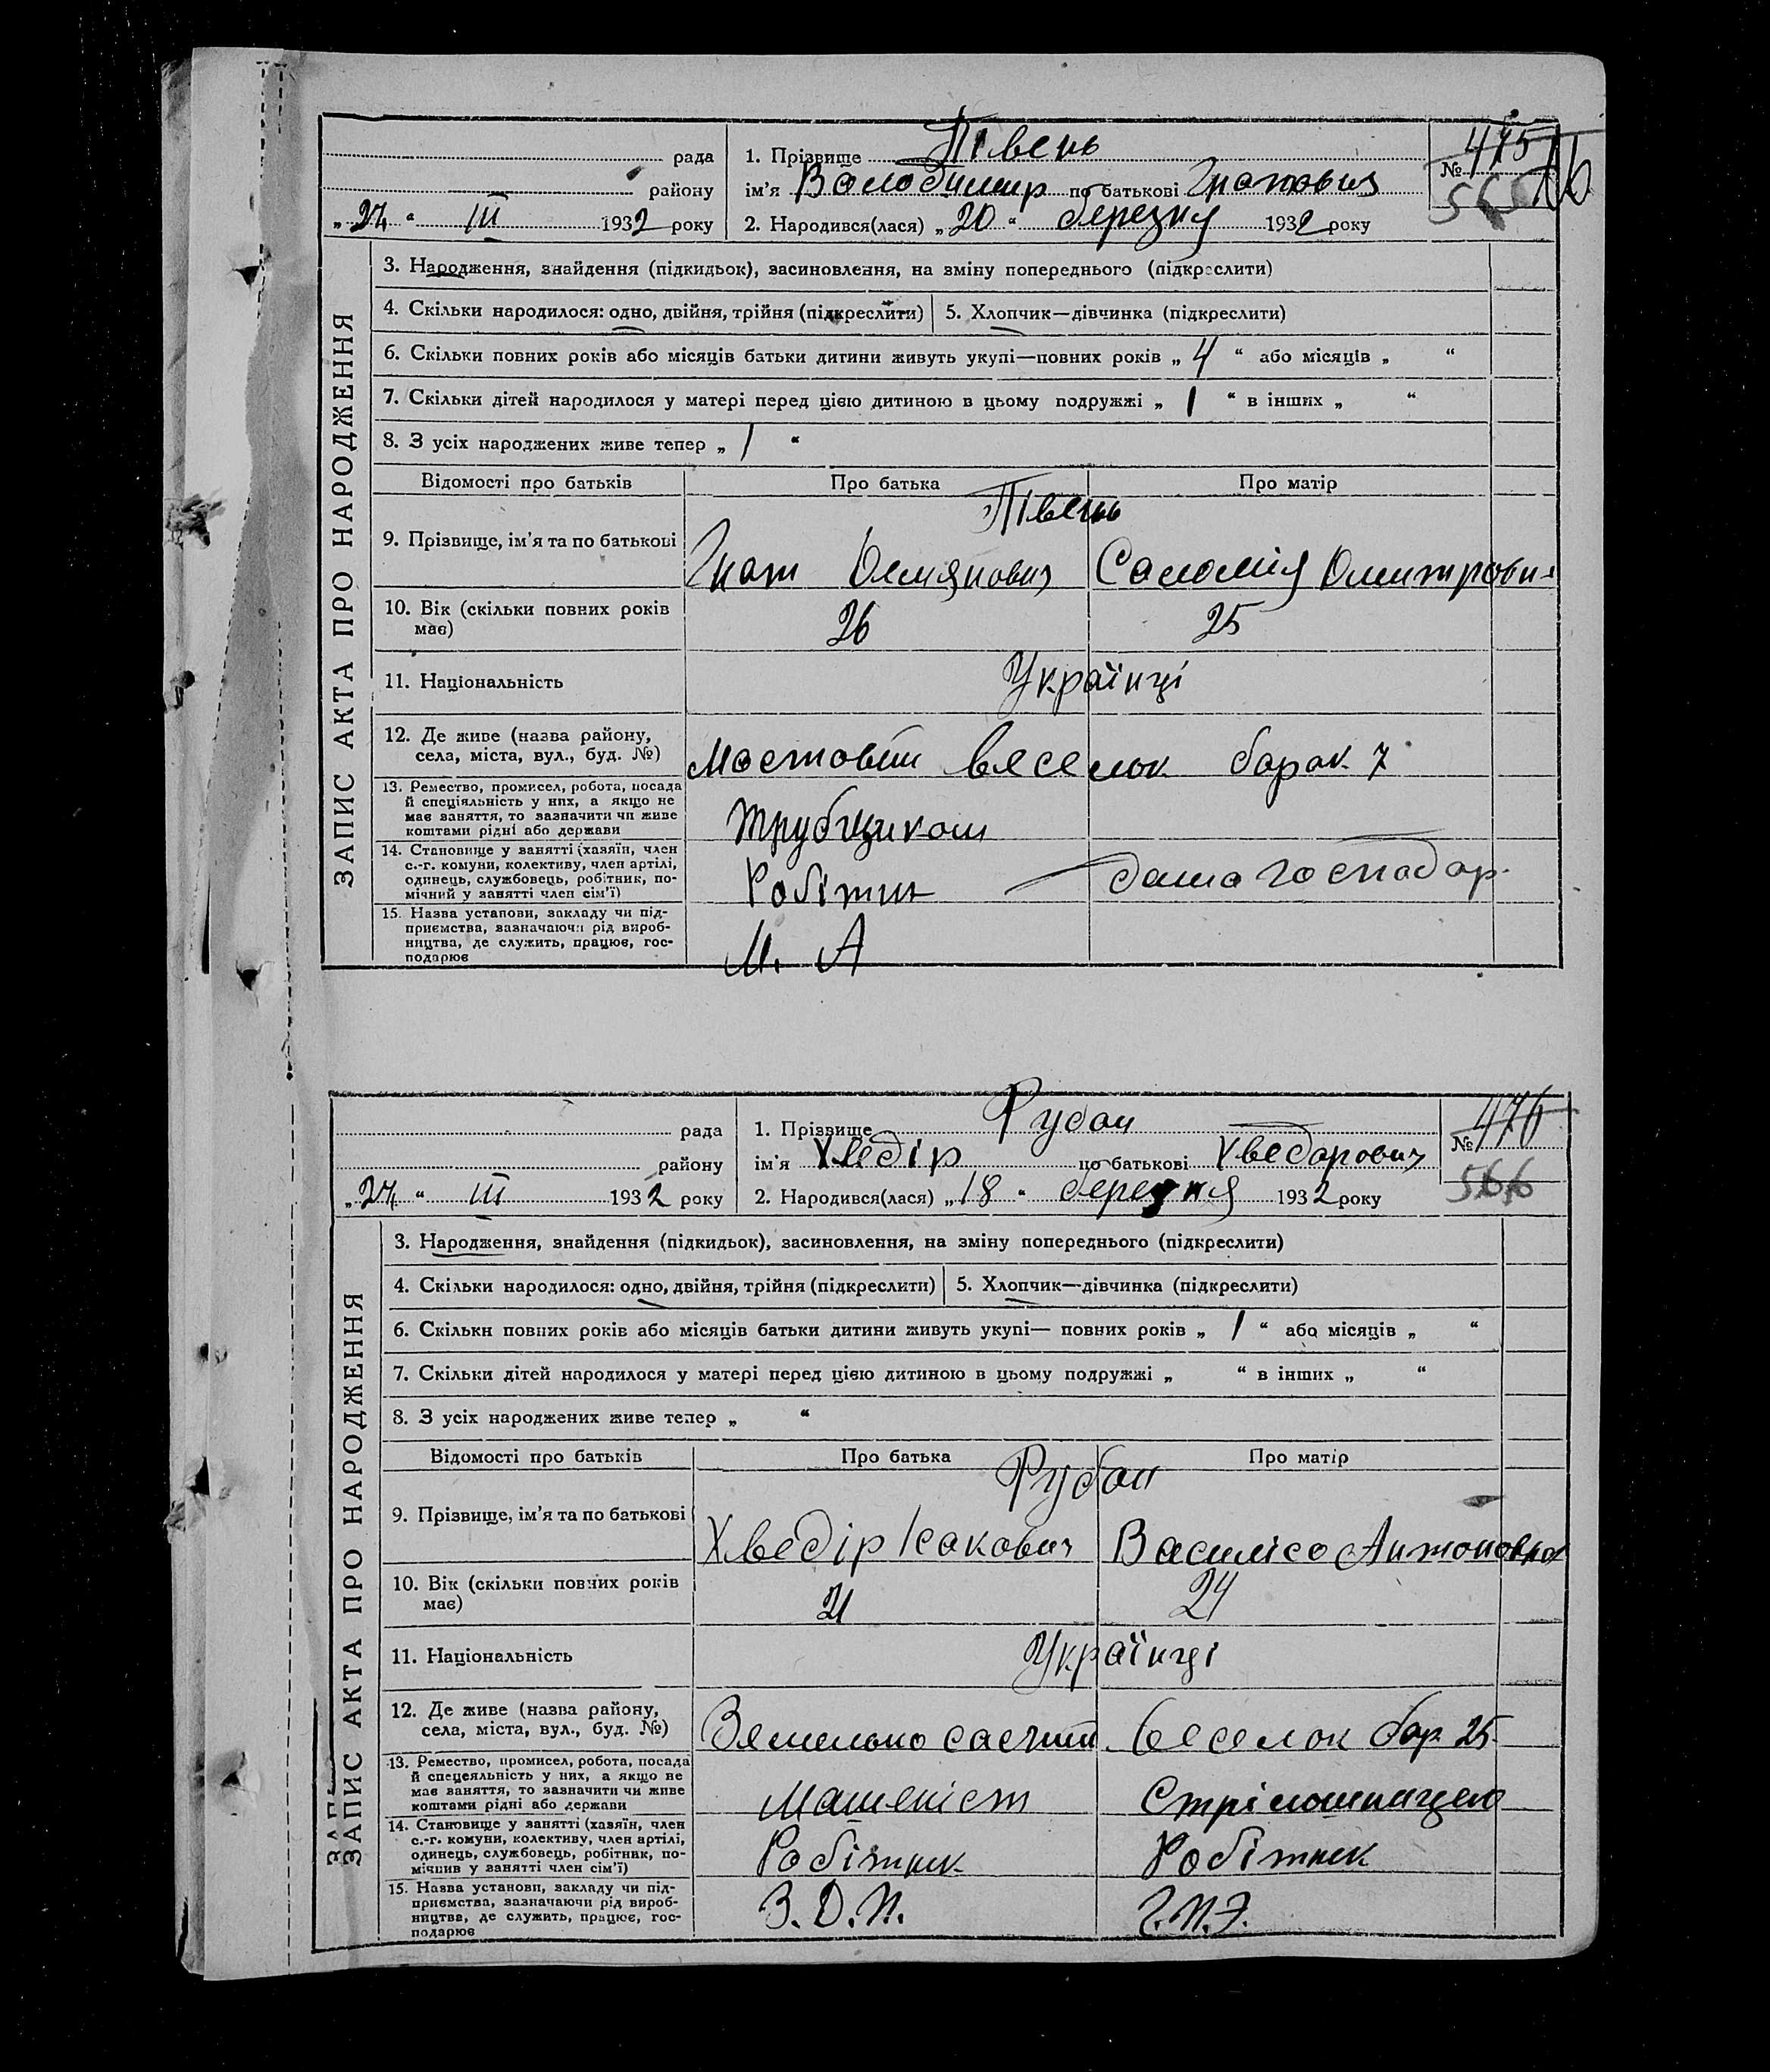 рада
району
„ 24 “ III 1932 року
1. Прізвище Півень
ім’я Володимир по батькові Гнатович
2. Народився(лася) „ 20 “ березня 1932 року
№ 475
565
3. Народження, знайдення (підкидьок), засиновлення, на зміну попереднього (підкреслити)
4. Скільки народилося: одно, двійня, трійня (підкреслити) 5. Хлопчик—дівчинка (підкреслити)
6. Скільки повних років або місяців батьки дитини живуть укупі—повних років „ 4 “ або місяців „ “
7. Скільки дітей народилося у матері перед цією дитиною в цьому подружжі „ 1 “ в інших „ “
8. З усіх народжених живе тепер „ 1 “
Відомості про батьків Про батька Про матір
Півень
9. Прізвище, ім’я та по батькові Гнат Демянович Саломія Дмитрови
10. Вік (скільки повних років 26 25
має)
11. Національність Українці
12. Де живе (назва району,
села, міста, вул., буд. №) Мостовий веселок барак 7
13. Ремество, промисел, робота, посада
й спеціяльність у них, а якщо не
має заняття, то зазначити чи живе
коштами рідні або держави
Трубщиком
14. Становище у занятті (хазяїн, член
с.-г. комуни, колективу, член артілі,
одинець, службовець, робітник, по-
мічний у занятті член сім’ї)
Робітник дома господар.
15. Назва установи, закладу чи під-
приємства, зазначаючи рід вироб-
ництва, де служить, працює, гос-
подарює
М. А
ЗАПИС АКТА ПРО НАРОДЖЕННЯ
рада
району
„ 24 “ III 1932 року
1. Прізвище Рубан
ім’я Хведір по батькові Хведорович
2. Народився(лася) „ 18 “ березня 1932 року
№ 476
566
3. Народження, знайдення (підкидьок), засиновлення, на зміну попереднього (підкреслити)
4. Скільки народилося: одно, двійня, трійня (підкреслити) 5. Хлопчик—дівчинка (підкреслити)
6. Скільки повних років або місяців батьки дитини живуть укупі— повних років „ 1 “ або місяців „ “
7. Скільки дітей народилося у матері перед цією дитиною в цьому подружжі „ “ в інших „ “
8. З усіх народжених живе тепер „ “
Відомості про батьків Про батька Про матір
Рубан
9. Прізвище, ім’я та по батькові Хведір Ісакович Василіса Антоновна
10. Вік (скільки повних років 21 24
має)
11. Національність Українці
12. Де живе (назва району,
села, міста, вул., буд. №) Земельно саечний веселок бар. 25
13. Ремество, промисел, робота, посада
й спецеяльність у них, а якщо не
має заняття, то зазначити чи живе
коштами рідні або держави
Машеніст Стрілошницею
14. Становище у занятті (хазяїн, член
с.-г. комуни, колективу, член артілі,
одинець, службовець, робітник, по-
мічнив у занятті член сім’ї)
Робітник Робітник
15. Назва установи, закладу чи під-
приємства, зазначаючи рід вироб-
ництва, де служить, працює, гос-
подарює
З.Д.П. Г.П.Э.
ЗАПИС АКТА ПРО НАРОДЖЕННЯ